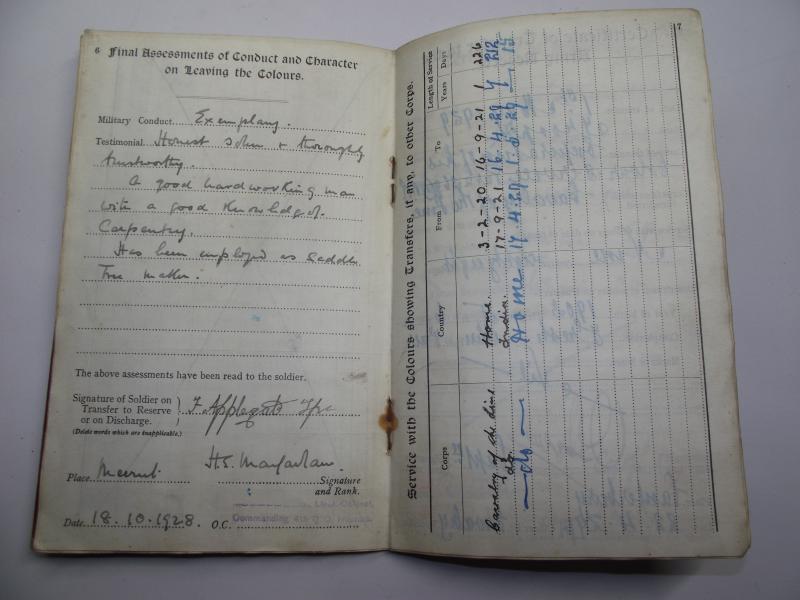 6 Final Assessments of Conduct and Character
on Leaving the Colours.
Military Conduct Exemplary.
Testimonial Honest sober & thoroughly
trustworthy.
A good hardworking man
with a good knowledge of
Carpentry.
Has been employed as Saddle
Tree maker.
The above assessments have been read to the soldier.
Signature of Soldier on
Transfer to Reserve
or on Discharge.
(Delete words which are inapplicable.)
F Applegate Tpr
Place Meerut
H.E. Macfarlane.
Signature
and Rank.
Date 18.10.1928. O.C.
Lieut-Colonel,
Commanding 4th Q.O. Hussars.
7
Service with the Colours showing Transfers, if any, to other Corps.
Corps Country From To Length of Service
Years Days
Cavalry of the Line Home 3-2-20 16-9-21 1 226
do India. 17-9-21 16.4.29 7 212
do Home 17.4.29